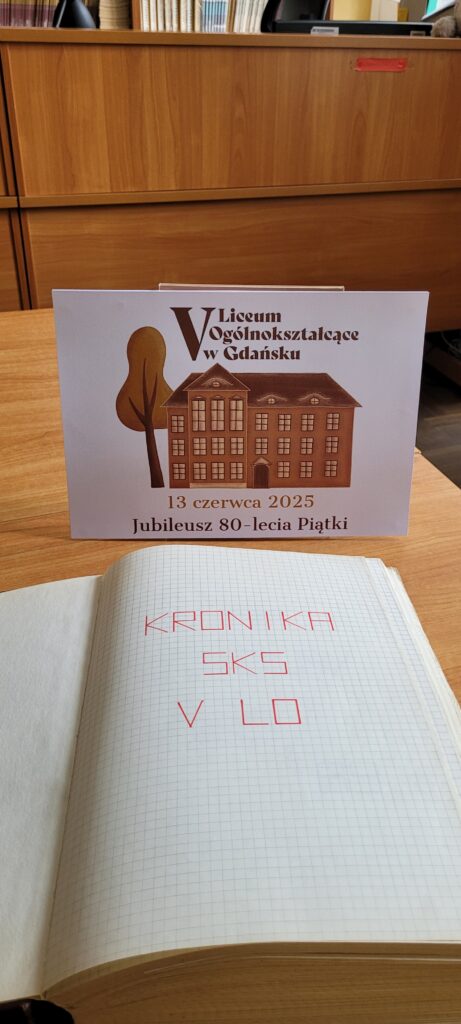 V Liceum
Ogólnokształcące
w Gdańsku
13 czerwca 2025
Jubileusz 80-lecia Piątki
KRONIKA
SKS
V LO